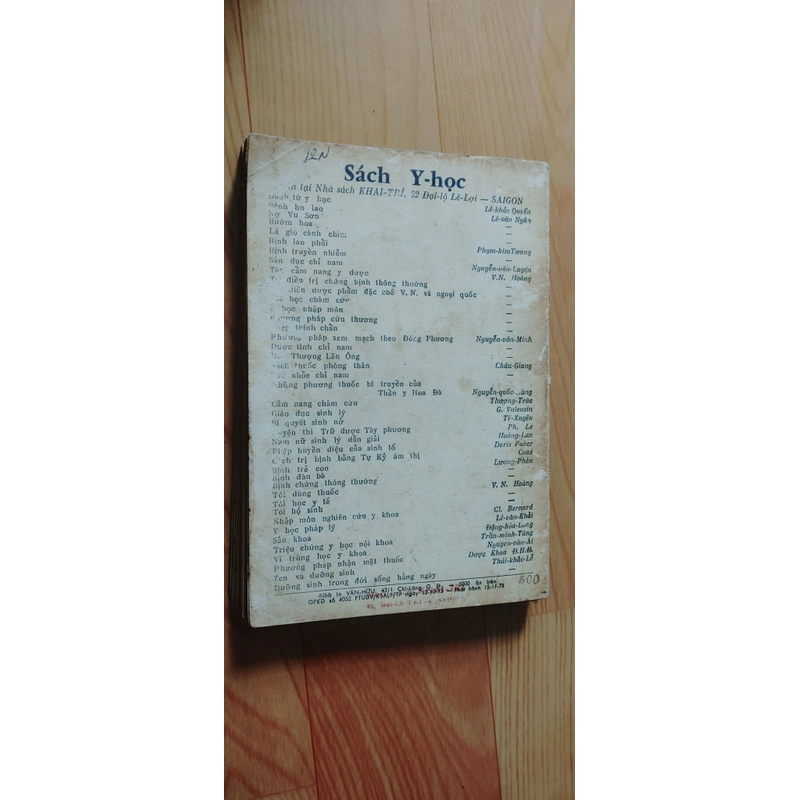 12N
Sách Y-học
tại Nhà sách KHAI-TRÍ, 62 Đại-lộ Lê-Lợi — SAIGON
Danh từ y học Lê-khắc Quyến
Bệnh ho lao Lê-văn Ngôn
Nợ Vu Sơn —
Bướm hoa —
Lá gió cành chim —
Bịnh lao phổi —
Bịnh truyền nhiễm Phạm-kim Tương
Sản dục chỉ nam —
cẩm nang y dược Nguyễn-văn-Luyện
điều trị chứng bịnh thông thường V.N. Hoàng
điển dược phẩm đặc chế V.N. và ngoại quốc —
học châm cứu —
học nhập môn —
Phương pháp cứu thương —
thính chẩn —
Phương pháp xem mạch theo Đông Phương Nguyễn-văn-Minh
Dược tính chỉ nam —
Thượng Lãn Ông —
thuốc phòng thân Châu-Giang
khỏe chỉ nam —
Những phương thuốc bí truyền của
Thần y Hoa Đà Nguyễn-quốc
Cẩm nang châm cứu Thượng-Trúc
Giáo dục sinh lý G. Valensin
Bí quyết sinh nở Tê-Xuyên
thi Trữ được Tây phương Ph. Le
Nam nữ sinh lý dẫn giải Hoàng-Lan
Phép huyền diệu của sinh tố Doris Faber
trị bịnh bằng Tự Kỷ ám thị Coué
Bịnh trẻ con Lương-Phán
Bịnh đàn bà —
Bịnh chứng thông thường —
Tôi dùng thuốc V. N. Hoàng
Tôi học y tế —
Tôi hộ sinh —
Nhập môn nghiên cứu y khoa Cl. Bernard
Y học pháp lý Lê-văn-Khải
Sản khoa Đặng-hóa-Long
Triệu chứng y học nội khoa Trần-minh-Tùng
Vi trùng học y khoa Nguyễn-văn-Ái
Phương pháp nhận mặt thuốc Dược Khoa Đ.H.Đ.
Zen và dưỡng sinh Thái-khắc-Lễ
Dưỡng sinh trong đời sống hằng ngày —
Nhà in VĂN-HỮU, Chi-Lăng, G. Đ. 3000 ấn bản
GPKD số 4052 ngày Phát hành
500